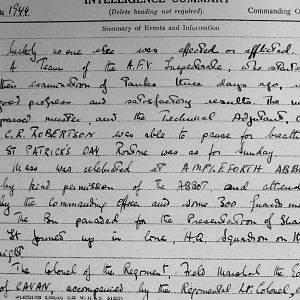 INTELLIGENCE SUMMARY
(Delete heading not required).
Commanding O
1944
Summary of Events and Information
luckily no one else was affected or afflicted.
A Team of the A.F.V. Inspectorate, who started
their examination of Tanks three days ago,
good progress and satisfactory results. The
passed muster, and the Technical Adjutant,
C. R. ROBERTSON was able to pause for breath
ST PATRICK'S DAY. Routine was as for Sunday.
Mass was celebrated at AMPLEFORTH ABB
by kind permission of the ABBOT, and attend
by the Commanding Officer and some 300 Guards
The Bn paraded for the Presentation of Sham
It formed up in line, HQ Squadron on the
right
The Colonel of the Regiment, Field Marshal the Ea
of CAVAN, accompanied by the Regimental Lt. Colonel,